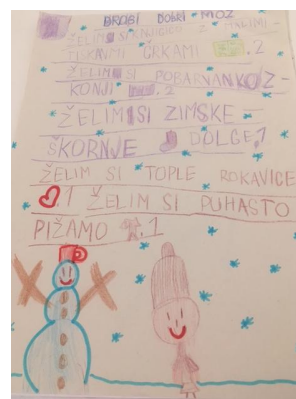 DRAGI DOBRI MOŽ
ŽELIM SI KNJIGICO Z MALIMI
TISKANIMI ČRKAMI .2
ŽELIM SI POBARVANKO Z
KONJI .2
ŽELIM SI ZIMSKE
ŠKORNJE DOLGE,1
ŽELIM SI TOPLE ROKAVICE
1 ŽELIM SI PUHASTO
PIŽAMO .1